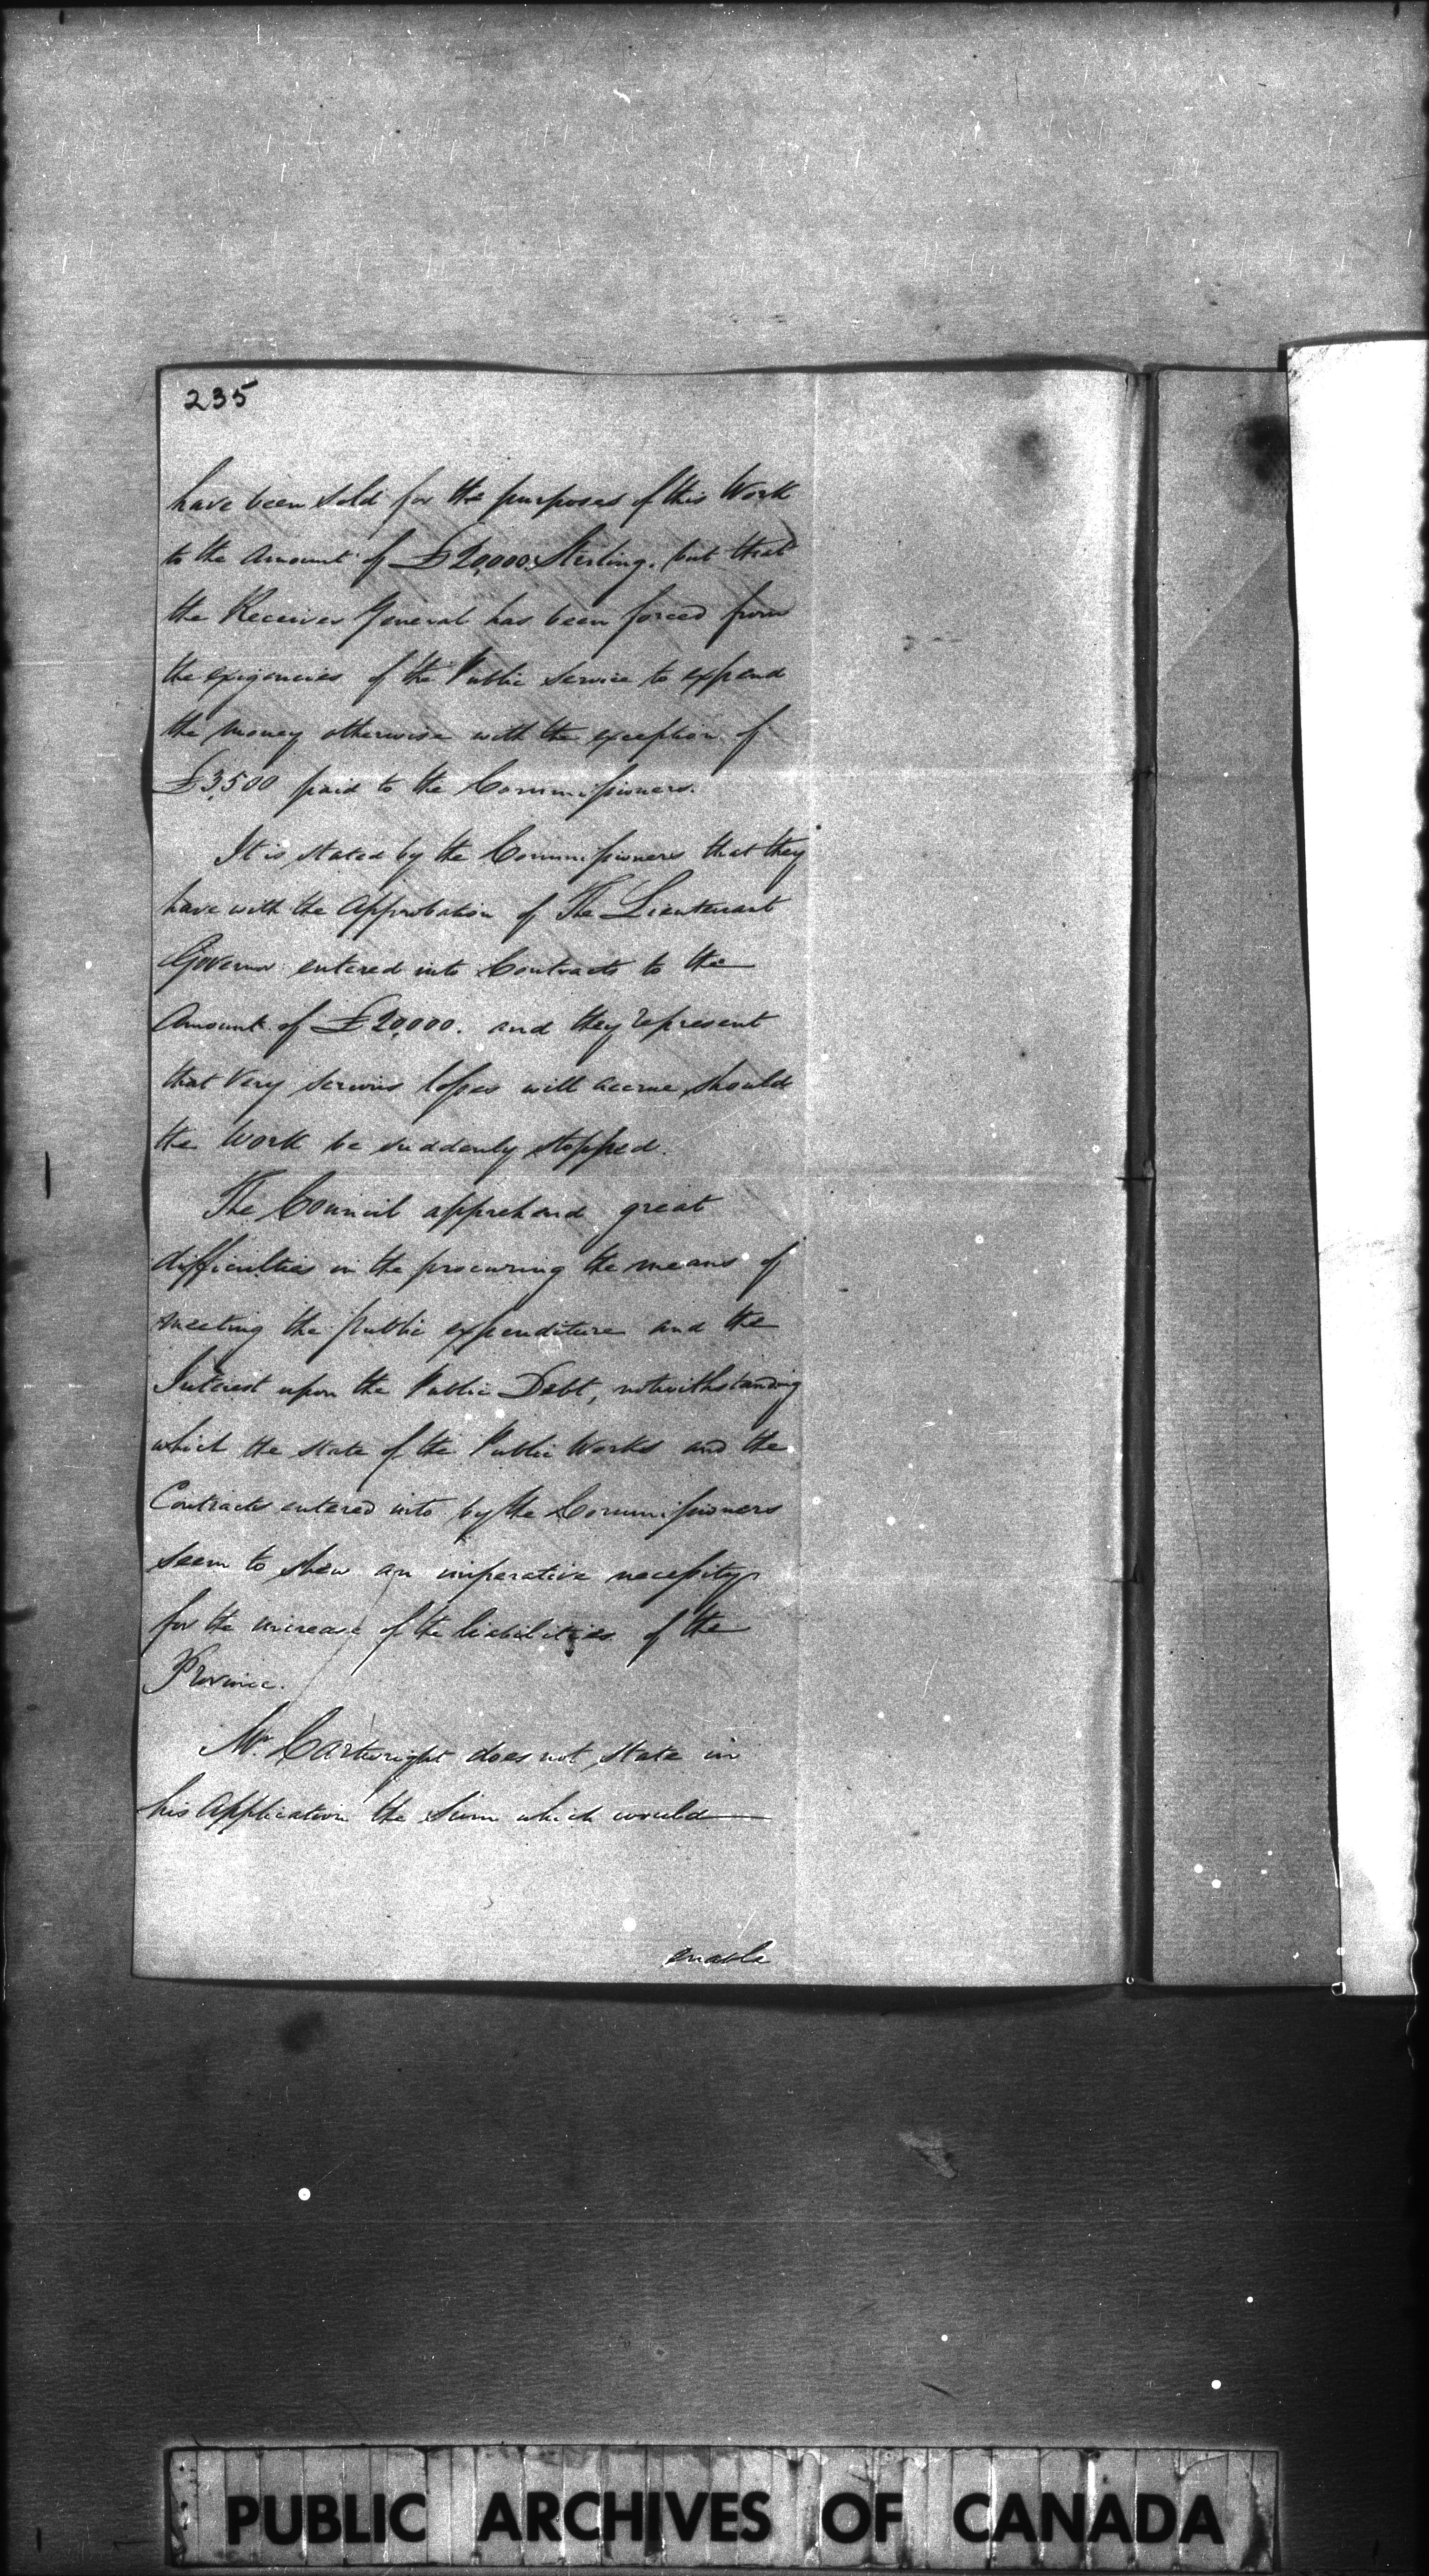 235
have been sold for the purposes of this Work
to the Amount of £20,000 Sterling. but that
the Receiver General has been forced from
the exigencies of the Public Service to expend
the money otherwise with the exception of
£3,500 paid to the Commissioners.
It is stated by the Commissioners that they
have with the Approbation of The Lieutenant
Governor entered into Contracts to the
Amount of £20,000. and they represent
that very serious losses will accrue should
the Work be suddenly stopped.
The Council apprehend great
difficulties in the procuring the means of
meeting the public expenditure and the
Interest upon the Public Debt, notwithstanding
which the state of the Public Works and the
Contracts entered into by the Commissioners
seem to shew an imperative necessity
for the increase of the liabilities of the
Province.
Mr. Cartwright does not state in
his Application the Sum which would
enable
PUBLIC ARCHIVES OF CANADA